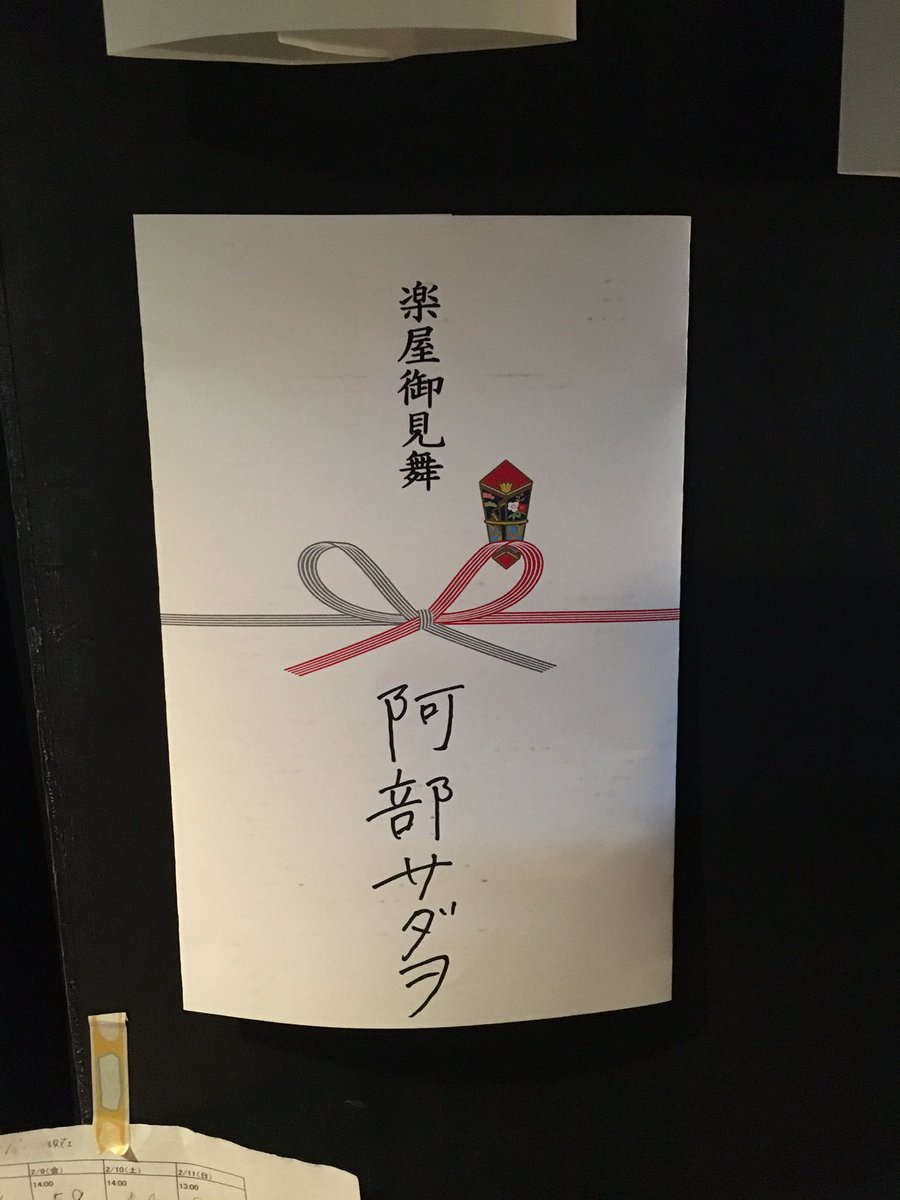 楽屋御見舞
阿部サダヲ
2/9(金) 2/10(土) 2/11(日)
14:00 14:00 13:00